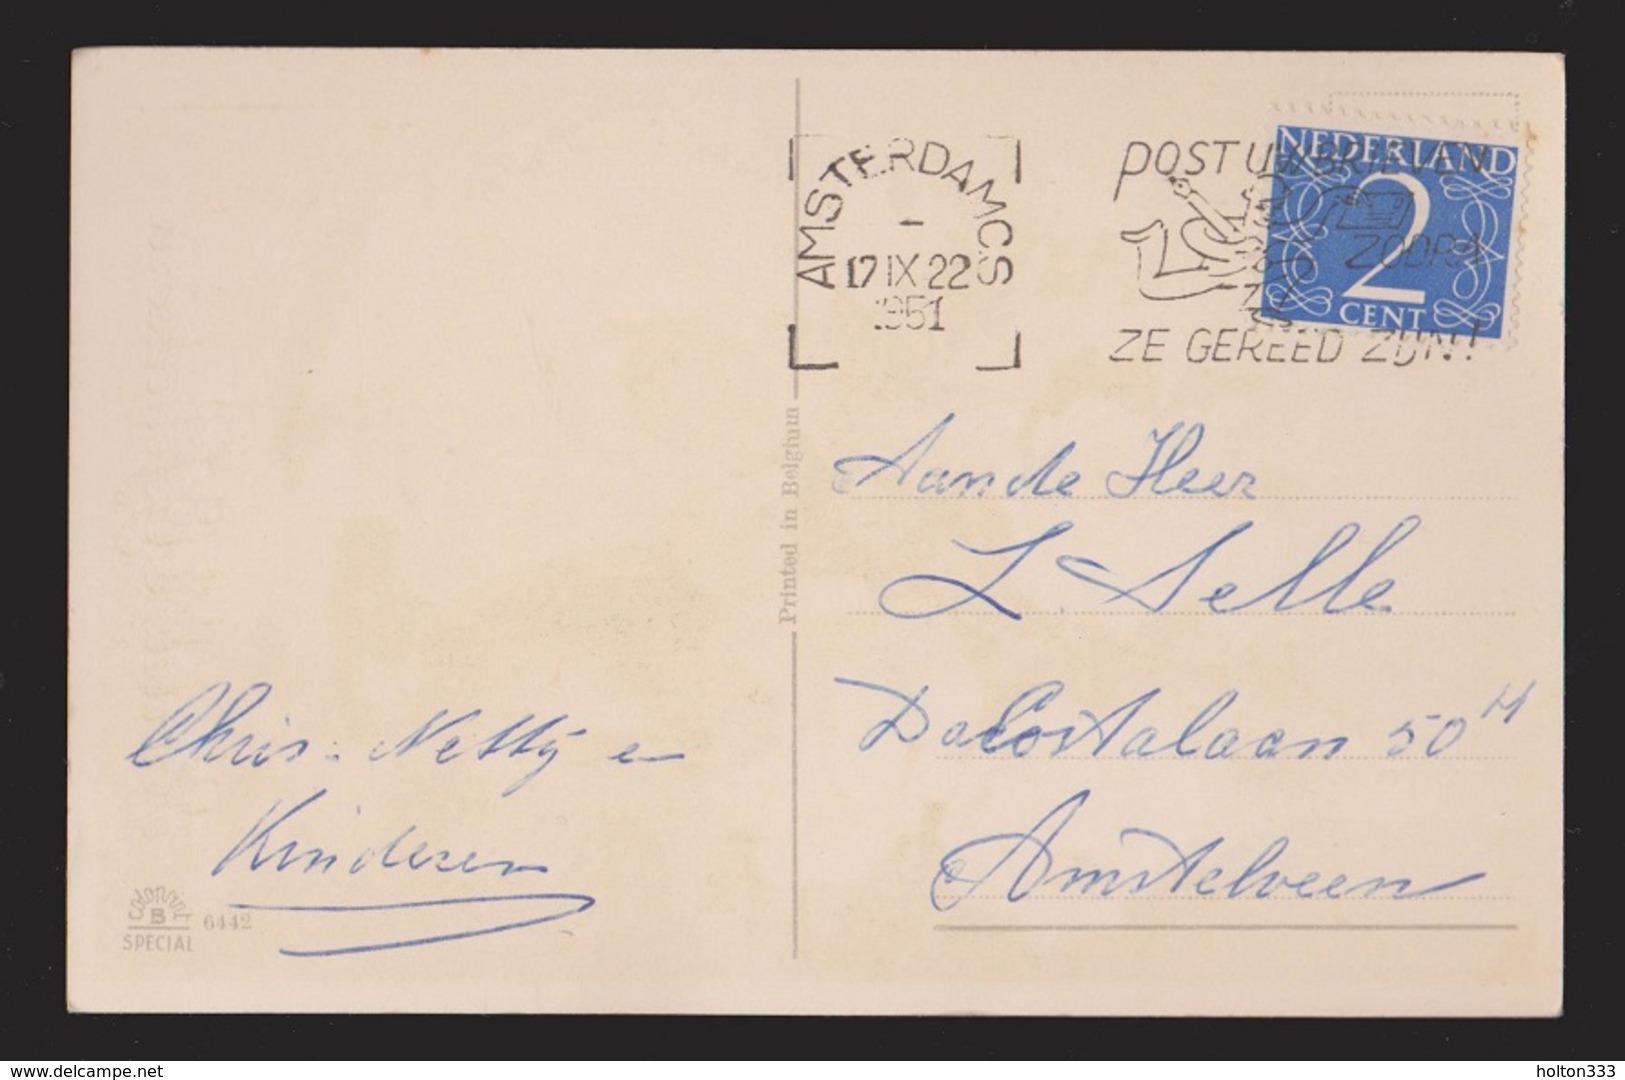 AMSTERDAM CS
17 IX 22
1951
POST UW BRIEVEN
ZODRA
ZE GEREED ZIJN!
NEDERLAND
2
CENT
Printed in Belgium
Aan de Heer
L. Selle
Da Costalaan 50 H
Amstelveen
Chris - Netty en
Kinderen
colorprint
B
SPECIAL
6442
www.delcampe.net
holton333